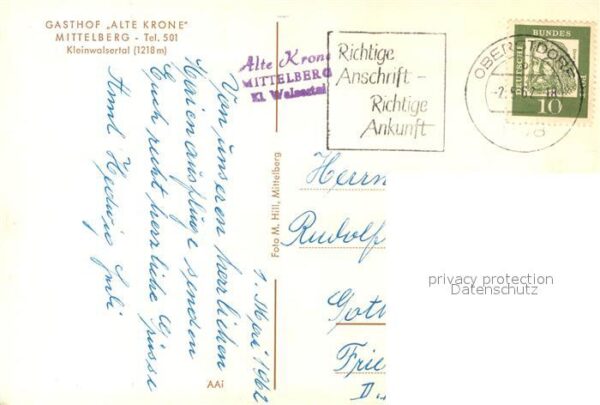 GASTHOF „ALTE KRONE"
MITTELBERG - Tel. 501
Kleinwalsertal (1218 m)
Alte Krone
MITTELBERG
Kl. Walsertal
Richtige
Anschrift -
Richtige
Ankunft
OBERSTDORF
DEUTSCHE BUNDES
10
1. Mai 1962
Von unseren herrlichen
Maienausflüge senden
Euch recht herrliche Grüsse
Hedwig
Foto M. Hill, Mittelberg
AAi
Herrn
Rudolf
Goth
Frie
privacy protection
Datenschutz